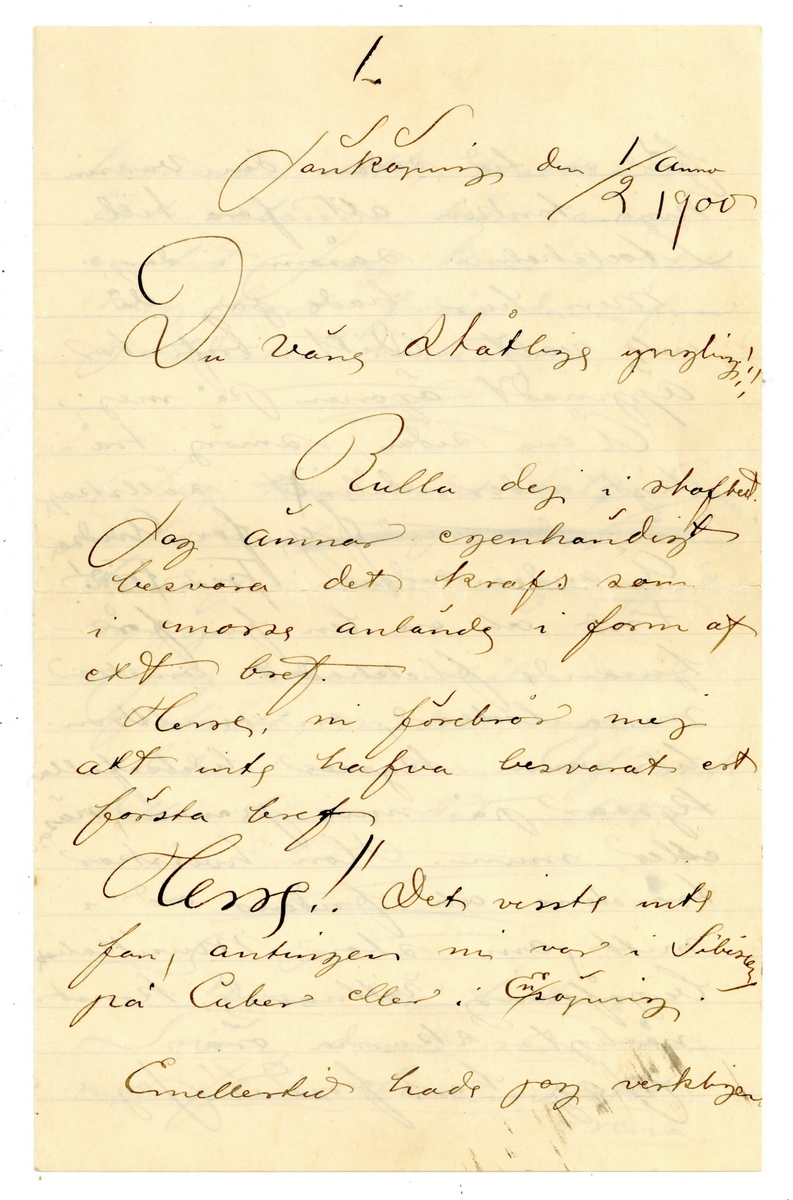 1.
Jönköping den 1/2 Anno
1900
Du väne ståtlige yngling!!!
Rulla dej i stoftet.
Jag ämnar egenhändigt
besvara det krafs som
i morse anlände i form af
ett bref.
Herre, ni förebrår mej
att inte hafva besvarat ert
första bref
Herre!! Det visste inte
fan, antingen ni var i Sibirien
på Cuber eller i Enköping.
Emellertid hade jag verkligen